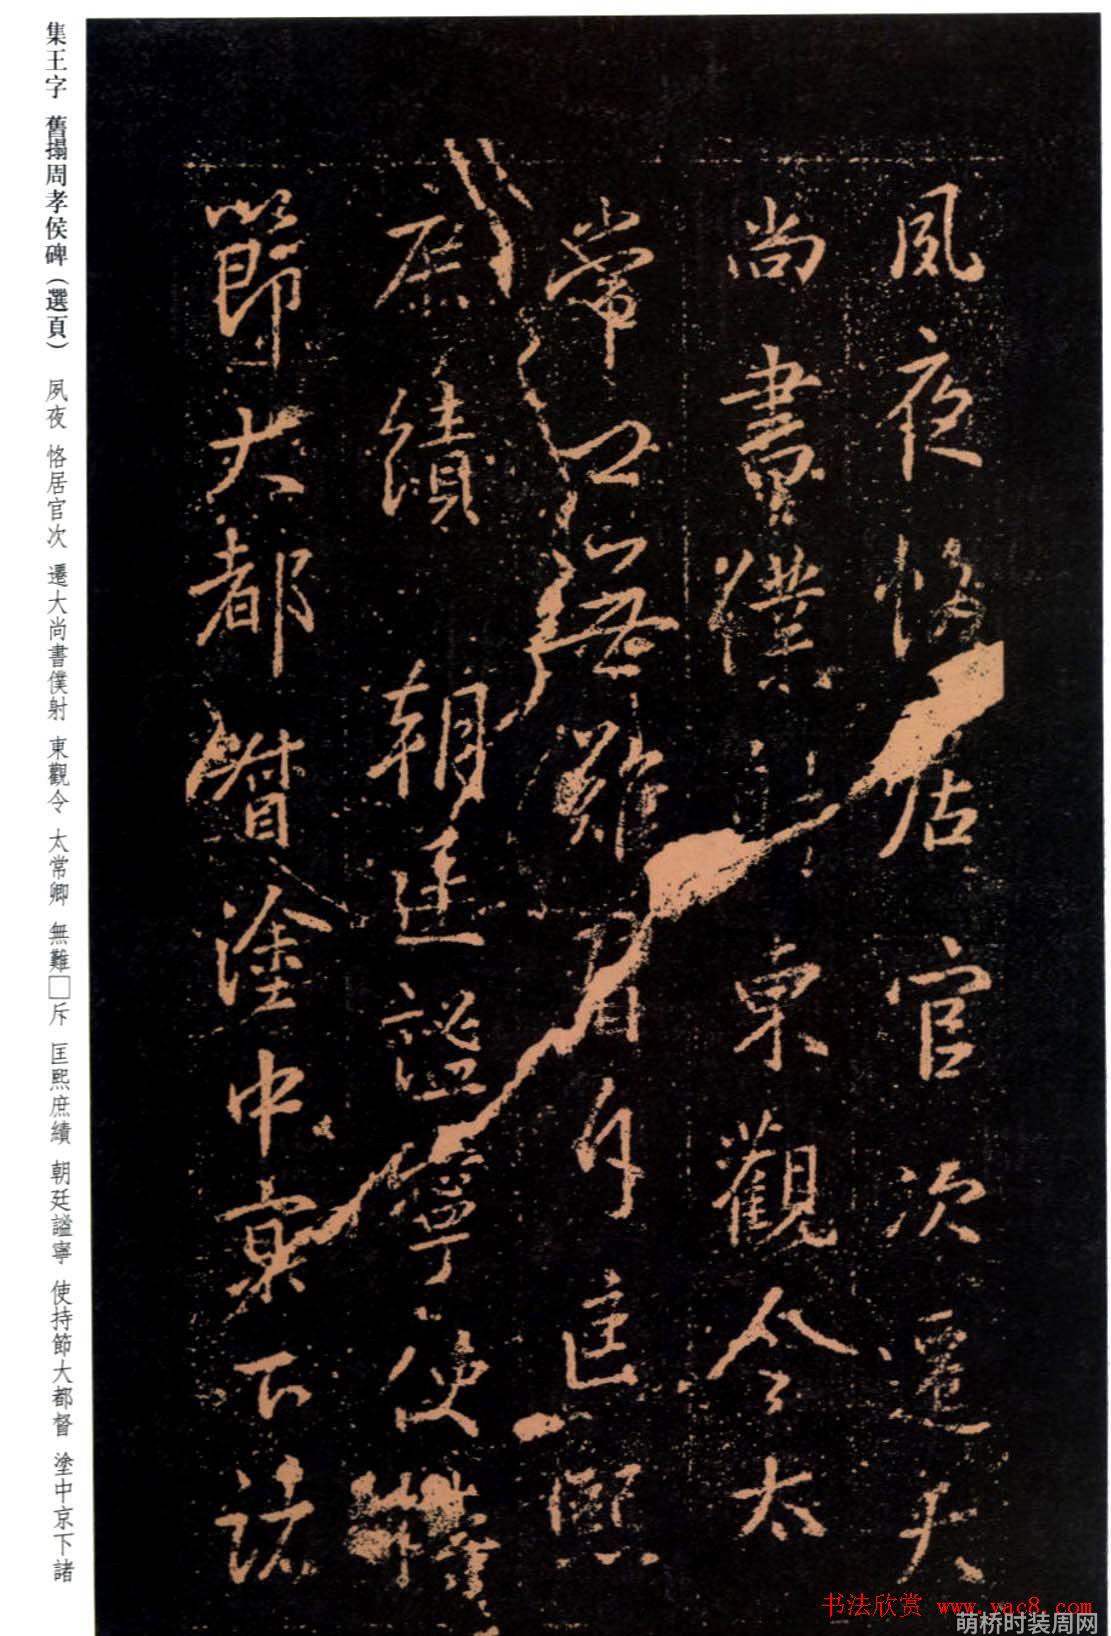 集王字 舊搨周孝侯碑（選頁） 夙夜 恪居官次 遷大尚書僕射 東觀令 太常卿 無難□斥 匡熙庶績 朝廷謐寧 使持節大都督 塗中京下諸
夙夜恪居官次遷大
尚書僕射東觀令太
常卿無難斥匡熙
庶績朝廷謐寧使持
節大都督塗中京下諸
书法欣赏 www.yac8.com
萌桥时装周网